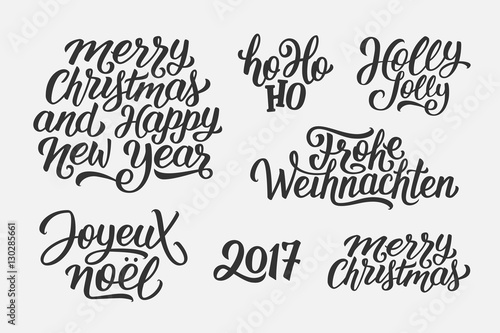 merry
Christmas
and Happy
New Year
hoHo
HO
Holly
Jolly
Frohe
Weihnachten
Joyeux
noël
2017
merry
Christmas
130285661